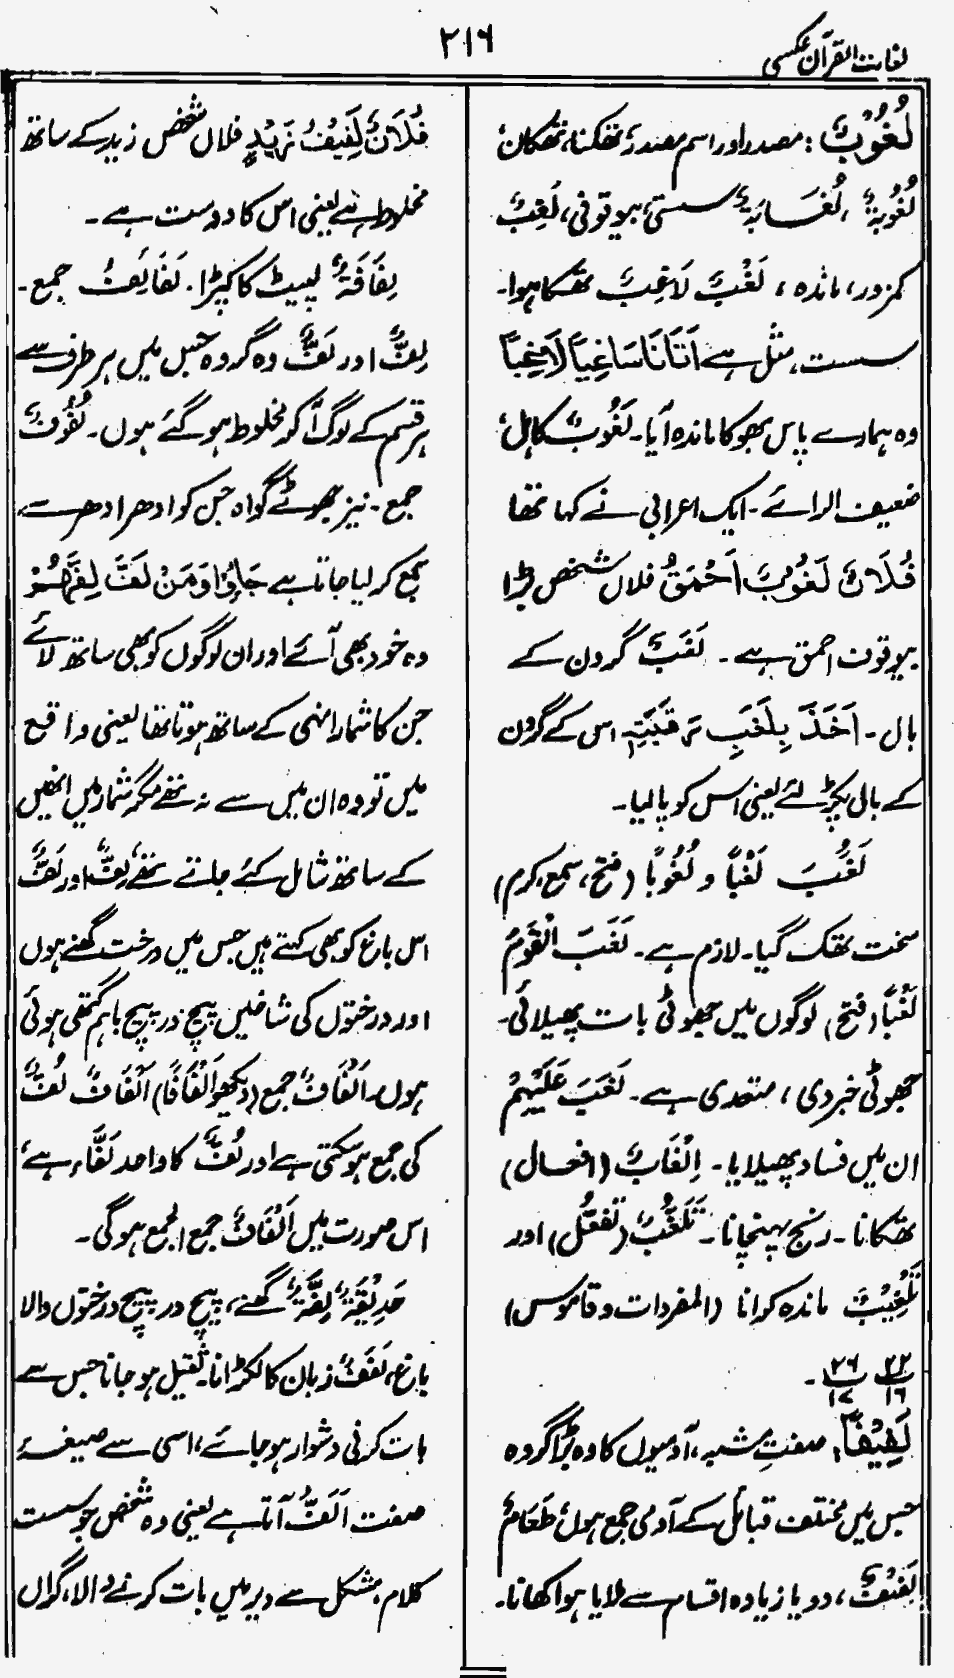 لغات القرآن عکسی
۲۱۶
لُغُوْبٌ : مصدر اور اسم مصدر، تھکنا، تھکان،
لُغُوْبَۃٌ ، لُغَابَۃٌ سستی، بیوقوفی، لَغِبٌ
کمزور، ماندہ ، لَغْبٌ لَاغِبٌ تھکا ہوا۔
سست، مثل ہے اَتَانَا سَاغِیاً لَاغِباً
وہ ہمارے پاس بھوکا ماندہ آیا۔ لَغُوبٌ کاہل،
ضعیف الرائے ۔ ایک اعرابی نے کہا تھا
فُلَانٌ لَغُوْبٌ اَحْمَقُ فلاں شخص بڑا
بیوقوف احمق ہے ۔ لَغَبٌ گردن کے
بال ۔ اَخَذَ بِلَغَبِ رَقَبَتِہٖ اس کے گردن
کے بال پکڑ لئے یعنی اس کو پا لیا۔
لَغَبَ لَغْباً و لُغُوباً (فتح، سمع، کرم)
سخت تھک گیا۔ لازم ہے ۔ لَغَبَ الْقَوْمَ
لَغْباً (فتح) لوگوں میں جھوٹی بات پھیلائی۔
جھوٹی خبر دی ، متعدی ہے ۔ لَغَبَ عَلَیْہِمْ
ان میں فساد پھیلایا ۔ اِلْغَابٌ (افعال)
تھکانا ۔ رنج پہنچانا ۔ تَلَغُّبٌ (تفعّل) اور
تَلْغِیْبٌ ماندہ کرانا (المفردات و قاموس)
۲۲/۱۶ ۲۶/۱۷ ۔
لَفِیْفاً ، صفتِ مشبہ، آدمیوں کا وہ بڑا گروہ
جس میں مختلف قبائل کے آدمی جمع ہوں، طَعَامٌ
لَفِیْفٌ ، دو یا زیادہ اقسام سے ملایا ہوا کھانا۔
فُلَانٌ لَفِیْفُ زَیْدٍ فلاں شخص زید کے ساتھ
مخلوط ہے یعنی اس کا دوست ہے ۔
لِفَافَۃٌ لپیٹ کا کپڑا . لَفَائِفُ جمع ۔
لِفٌّ اور لَفٌّ وہ گروہ جس میں ہر طرف سے
ہر قسم کے لوگ آ کر مخلوط ہو گئے ہوں ۔ لُفُوْفٌ
جمع ۔ نیز جھوٹے گواہ جن کو ادھر ادھر سے
جمع کر لیا جاتا ہے جَاءُوْا وَمَنْ لَفَّ لِفَّھُمْ
وہ خود بھی آئے اور ان لوگوں کو بھی ساتھ لائے
جن کا شمار انہی کے ساتھ ہوتا تھا یعنی واقع
میں تو وہ ان میں سے نہ تھے مگر شمار میں انھیں
کے ساتھ شامل کئے جاتے تھے، لِفٌّ اور لَفٌّ
اس باغ کو بھی کہتے ہیں جس میں درخت گھنے ہوں
اور درختوں کی شاخیں پیچ در پیچ باہم گتھی ہوئی
ہوں۔ اَلْفَافٌ جمع (دیکھو اَلْفَافًا) اَلْفَافٌ لُفٌّ
کی جمع ہو سکتی ہے اور لُفٌّ کا واحد لَفَّاء ہے،
اس صورت میں اَلْفَافٌ جمع الجمع ہوگی ۔
حَدِیْقَۃٌ لِفَّۃٌ گھنے، پیچ در پیچ درختوں والا
باغ، لَفَفٌ زبان کا لکڑانا۔ ثقیل ہو جانا جس سے
بات کرنی دشوار ہو جائے، اسی سے صیغۂ
صفت اَلَفُّ آتا ہے یعنی وہ شخص جو سست
کلام، مشکل سے دیر میں بات کرنے والا، گراں